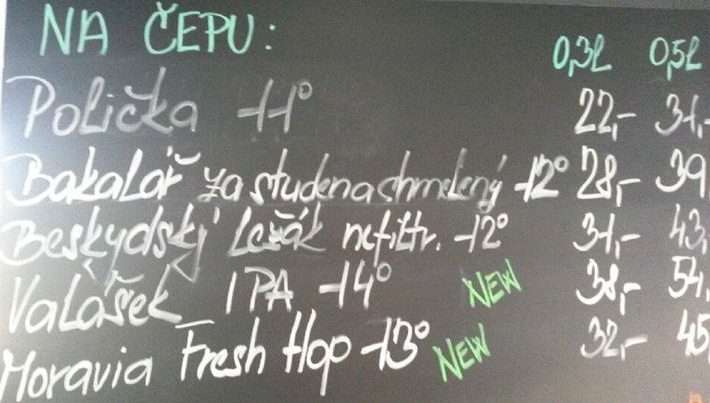 NA ČEPU: 0,3l 0,5l
Polička -11° 22,- 31,-
Bakalář za studena chmelený -12° 28,- 39
Beskydský Ležák nefiltr. -12° 31,- 43,
Valášek IPA -14° NEW 38,- 54,
Moravia Fresh Hop -13° NEW 32,- 45